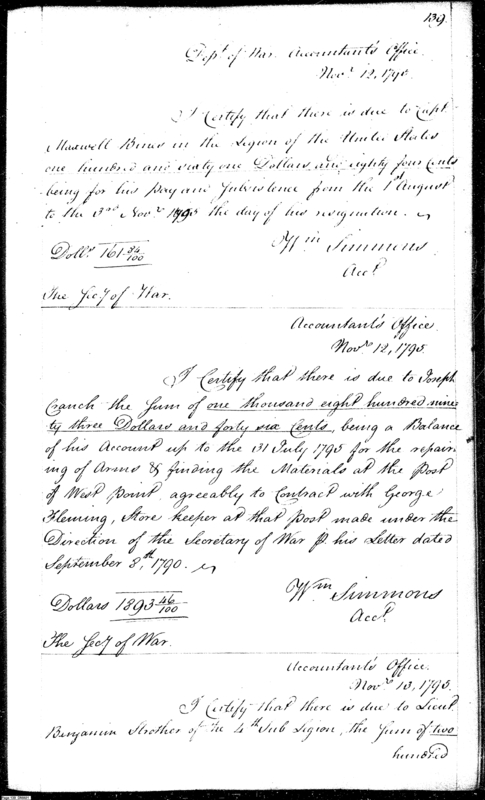 139.
Dept. of War Accountant's Office
Novr. 12, 1795.
I Certify that there is due to Capt.
Maxwell Bines in the Legion of the United States
one hundred and sixty one Dollars, and eighty four Cents
being for his Pay and Subsistence from the 1st August
to the 3rd Novr. 1795 the day of his resignation.
Dollrs. 161 84/100
Wm Simmons
Acct.
The Secy of War.
Accountant's Office
Novr. 12, 1795.
I Certify that there is due to Joseph
Cranch the Sum of one thousand eight hundred nine
ty three Dollars and forty six Cents, being a Balance
of his Account up to the 31 July 1795 for the repair
ing of Arms & finding the Materials at the Post
of West Point agreeably to Contract with George
Fleming, Store keeper at that Post made under the
Direction of the Secretary of War p. his Letter dated
September 8th, 1790.
Dollars 1893 46/100
Wm Simmons
Acct.
The Secy of War.
Accountant's Office.
Novr. 13, 1795.
I Certify that there is due to Lieut
Benjamin Strother of the 4th Sub Legion, the Sum of two
hundred